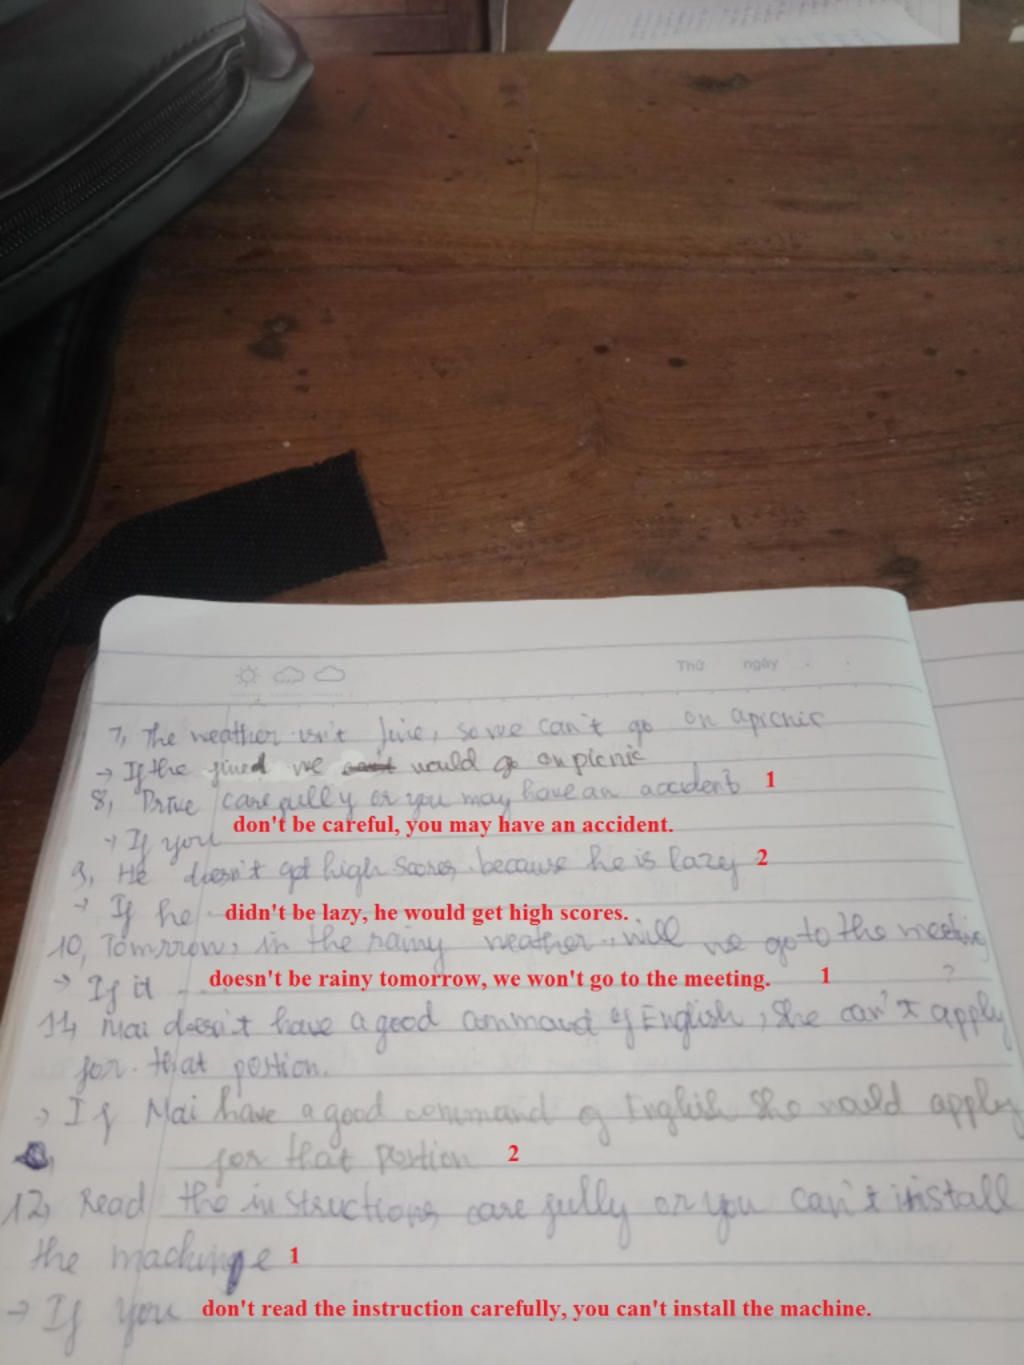 Thứ ngày
7, The weather isn't fine, so we can't go on a picnic
→ If the fined we can't would go on picnic
8, Drive carefully or you may have an accident 1
→ If you don't be careful, you may have an accident.
9, He doesn't get high scores because he is lazy 2
→ If he didn't be lazy, he would get high scores.
10, Tomrrow, in the rainy weather, will we go to the meeting
→ If it doesn't be rainy tomorrow, we won't go to the meeting. 1 ?
11, Mai doesn't have a good command of English, she can't apply
for that postion.
→ If Mai have a good command of English she would apply
for that postion 2
12, Read the instructions carefully or you can't install
the machine 1
→ If you don't read the instruction carefully, you can't install the machine.